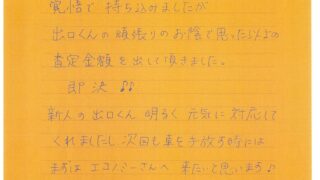 覚悟で 持ち込みましたが
出口くんの頑張りのお陰で思った以上の
査定金額を出して頂きました。
即決 ♪♪
新人の出口くん 明るく 元気に 対応して
くれましたし 次回も 車を手放す時には
まずは エコノミーさんへ 来たいと思います♪